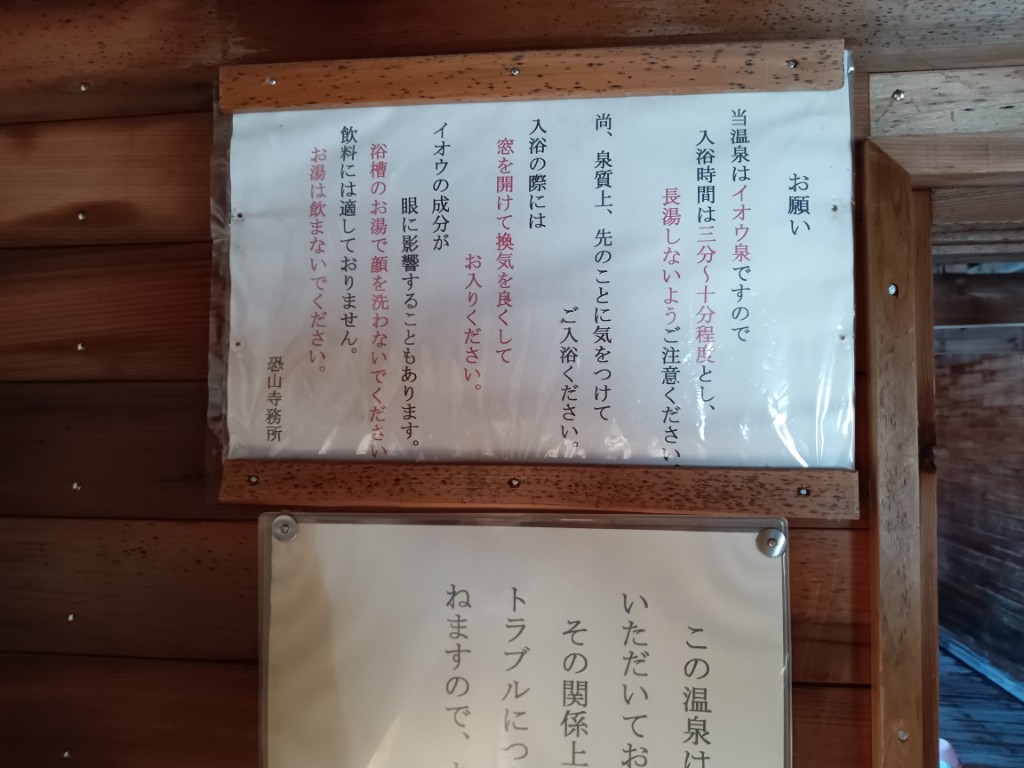 お願い
当温泉はイオウ泉ですので
入浴時間は三分～十分程度とし、
長湯しないようご注意ください。
尚、泉質上、先のことに気をつけて
ご入浴ください。
入浴の際には
窓を開けて換気を良くして
お入りください。
イオウの成分が
眼に影響することもあります。
浴槽のお湯で顔を洗わないでください
飲料には適しておりません。
お湯は飲まないでください。
恐山寺務所
この温泉は
いただいてお
その関係上
トラブルにつ
ねますので、